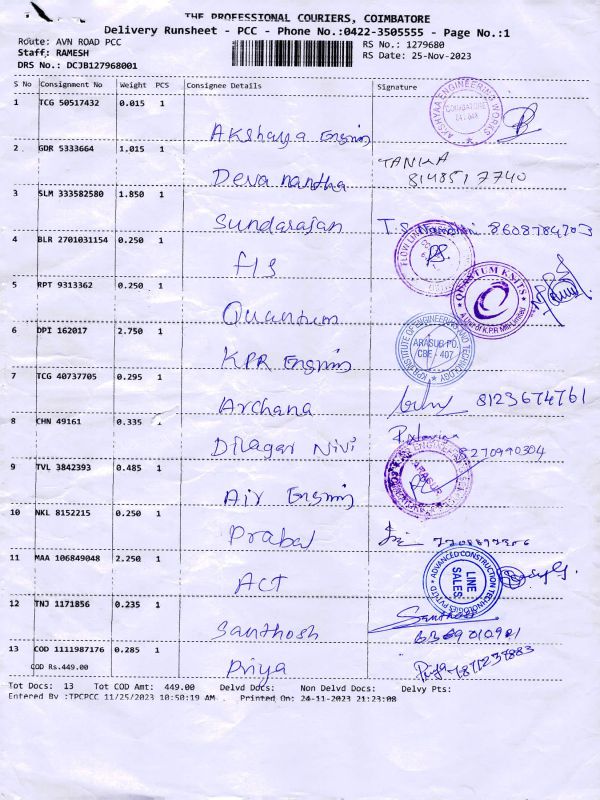 THE PROFESSIONAL COURIERS, COIMBATORE
Delivery Runsheet - PCC - Phone No.:0422-3505555 - Page No.:1
Route: AVN ROAD PCC
RS No.: 1279680
Staff: RAMESH
RS Date: 25-Nov-2023
DRS No.: DCJB127968001
S No Consignment No Weight PCS Consignee Details Signature
1 TCG 50517432 0.015 1
Akshaya Enging
AKSHAYAA ENGINEERING WORKS COIMBATORE
2 GDR 5333664 1.015 1
Deva nantha
8148517740
3 SLM 333582580 1.850 1
Sundarajan
8608784203
4 BLR 2701031154 0.250 1
FLS
5 RPT 9313362 0.250 1
Quantum
QUANTUM KNITS
A Unit of K.P.R Mill Limited
6 DPI 162017 2.750 1
KPR Enging
INSTITUTE OF ENGINEERING AND TECHNOLOGY
ARASUR PO.
CBE - 407
7 TCG 40737705 0.295 1
Archana
8123674761
8 CHN 49161 0.335 1
Dilagar Nivi
8270990304
9 TVL 3842393 0.485 1
Air Enging
ARASUR
10 NKL 8152215 0.250 1
Prabal
11 MAA 106849048 2.250 1
ACT
ADVANCED CONSTRUCTION TECHNOLOGIES PVT LTD
LINE
SALES
12 TNJ 1171856 0.235 1
Santhosh
Santhosh
13 COD 1111987176 0.285 1
COD Rs.449.00
Priya
Priya
7871237883
Tot Docs: 13 Tot COD Amt: 449.00 Delvd Docs: Non Delvd Docs: Delvy Pts:
Entered By :TPCPCC 11/25/2023 10:50:19 AM . Printed On: 24-11-2023 21:23:08